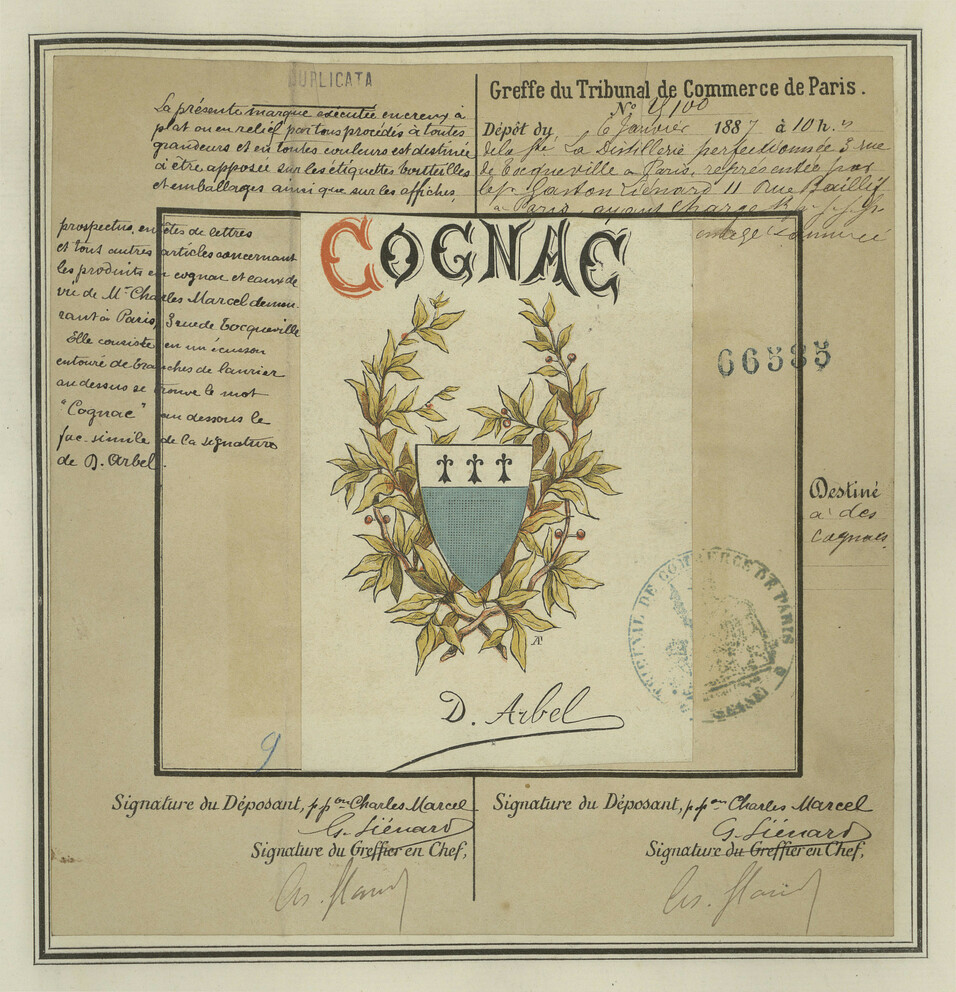 DUPLICATA
La présente marque exécutée en creux à
plat ou en relief par tous procédés à toutes
grandeurs et en toutes couleurs est destinée
à être apposée sur les étiquettes bouteilles
et emballages ainsi que sur les affiches,
prospectus, en têtes de lettres
et tout autres articles concernant
les produits en cognac et eaux de
vie de Mr Charles Marcel demeu-
rant à Paris, 3 rue de Tocqueville
Elle consiste en un écusson
entouré de branches de laurier
au dessus se trouve le mot
"Cognac" au dessous le
fac-simile de la signature
de D. Arbel.
Greffe du Tribunal de Commerce de Paris.
No
Dépôt du 6 Janvier 1887 à 10 h.
de la Sté La Distillerie perfectionnée 3 rue
de Tocqueville à Paris, représentée par
Gaston Liénard 11 Rue Baillif
à Paris, ayant charge
COGNAC
66535
Destiné
à des
cognacs.
TRIBUNAL DE COMMERCE DE PARIS
SEINE
AP
D. Arbel
9
Signature du Déposant, p pon Charles Marcel
G. Liénard
Signature du Greffier en Chef,
Signature du Déposant, p pon Charles Marcel
G. Liénard
Signature du Greffier en Chef,